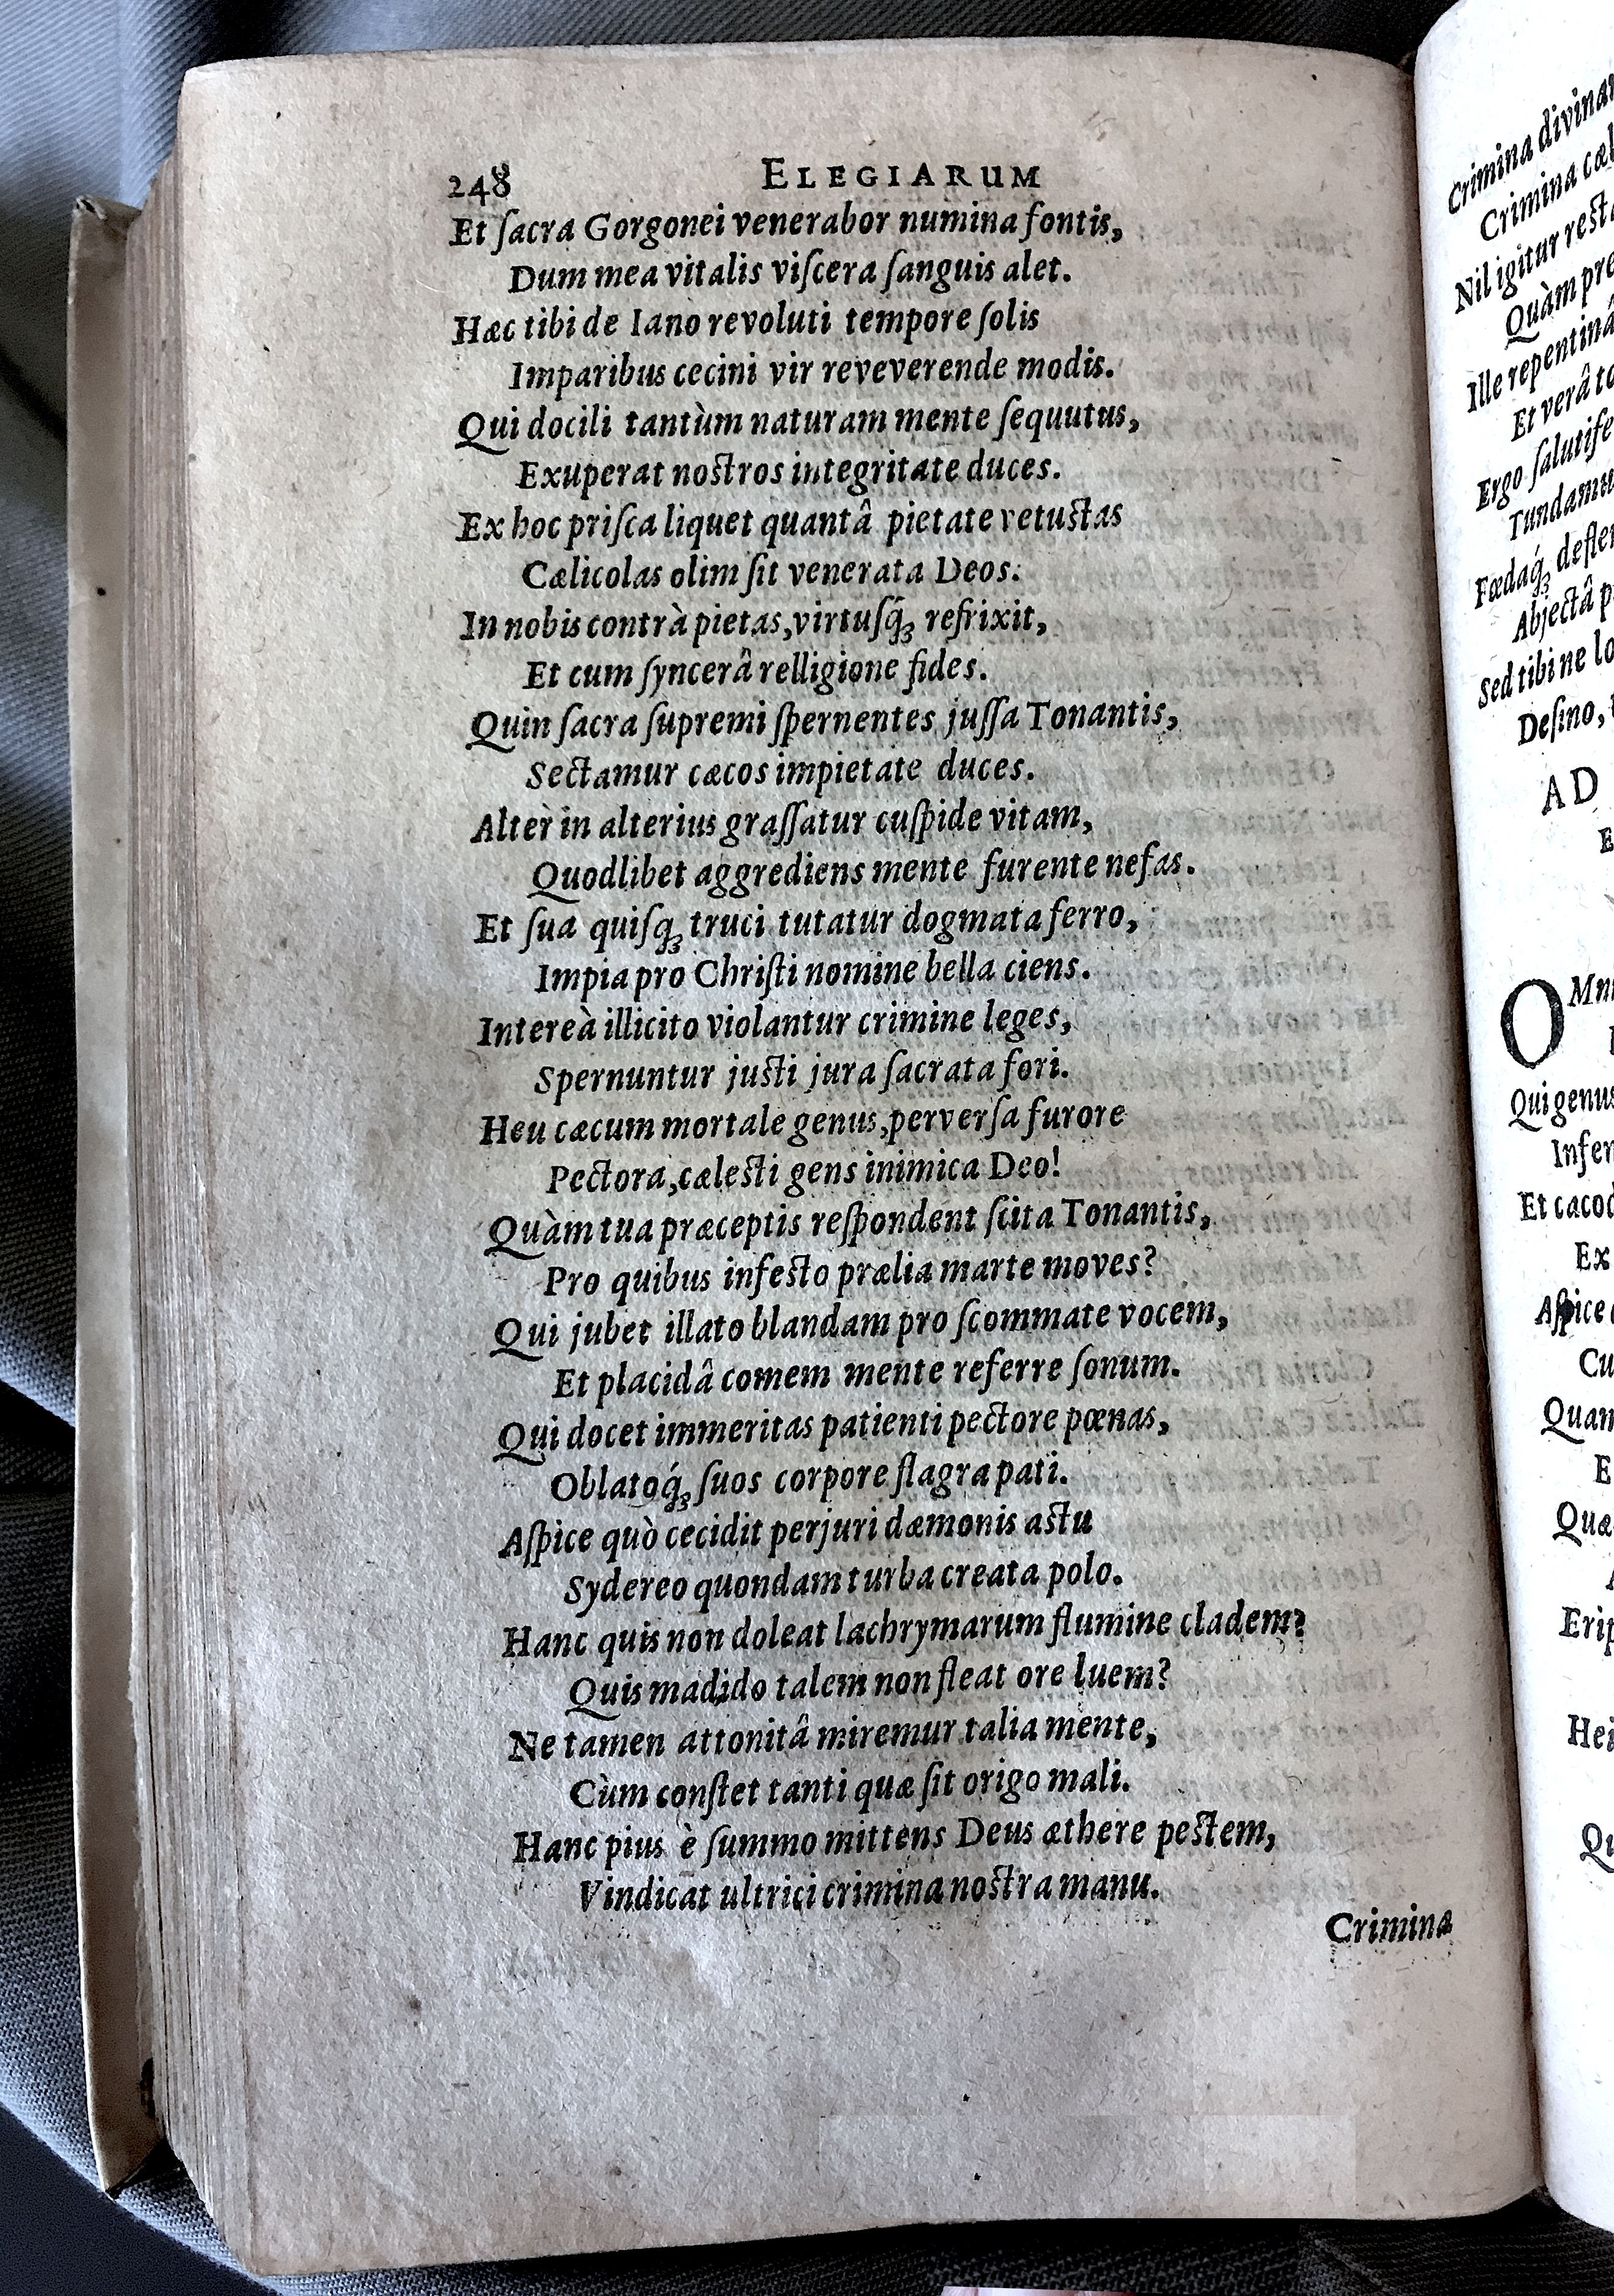 248 ELEGIARUM
Et ſacra Gorgonei venerabor numina fontis,
Dum mea vitalis viſcera ſanguis alet.
Hæc tibi de Iano revoluti tempore ſolis
Imparibus cecini vir reveverende modis.
Qui docili tantùm naturam mente ſequutus,
Exuperat noſtros integritate duces.
Ex hoc priſca liquet quantâ pietate vetuſtas
Cælicolas olim ſit venerata Deos.
In nobis contrà pietas, virtuſq́ꝫ refrixit,
Et cum ſyncerâ relligione fides.
Quin ſacra ſupremi ſpernentes juſſa Tonantis,
Sectamur cæcos impietate duces.
Alter in alterius graſſatur cuſpide vitam,
Quodlibet aggrediens mente furente nefas.
Et ſua quiſqꝫ truci tutatur dogmata ferro,
Impia pro Chriſti nomine bella ciens.
Intereà illicito violantur crimine leges,
Spernuntur juſti jura ſacrata fori.
Heu cæcum mortale genus, perverſa furore
Pectora, cæleſti gens inimica Deo!
Quàm tua præceptis reſpondent ſcita Tonantis,
Pro quibus infeſto prælia marte moves?
Qui jubet illato blandam pro ſcommate vocem,
Et placidâ comem mente referre ſonum.
Qui docet immeritas patienti pectore pœnas,
Oblatoq́ꝫ ſuos corpore flagra pati.
Aſpice quò cecidit perjuri dæmonis aſtu
Sydereo quondam turba creata polo.
Hanc quis non doleat lachrymarum flumine cladem?
Quis madido talem non fleat ore luem?
Ne tamen attonitâ miremur talia mente,
Cùm conſtet tanti quæ ſit origo mali.
Hanc pius è ſummo mittens Deus æthere peſtem,
Vindicat ultrici crimina noſtra manu.
Crimina
Crimina
Crimina
Nil igitur
Quàm
Ille
Et verâ
Ergo
Fœdaq́ꝫ
Abjectâ
Sed tibi ne
Deſino,
AD
Qui genus
Et
Ex
Aſpice